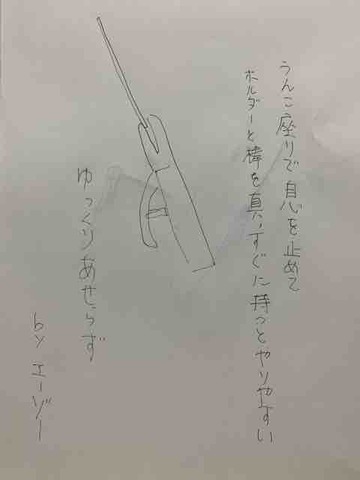 うんこ座りで自心を止めて
ホルダーと棒を真っすぐに持つとやりやすい
ゆっくりあせらず
by エーゾー